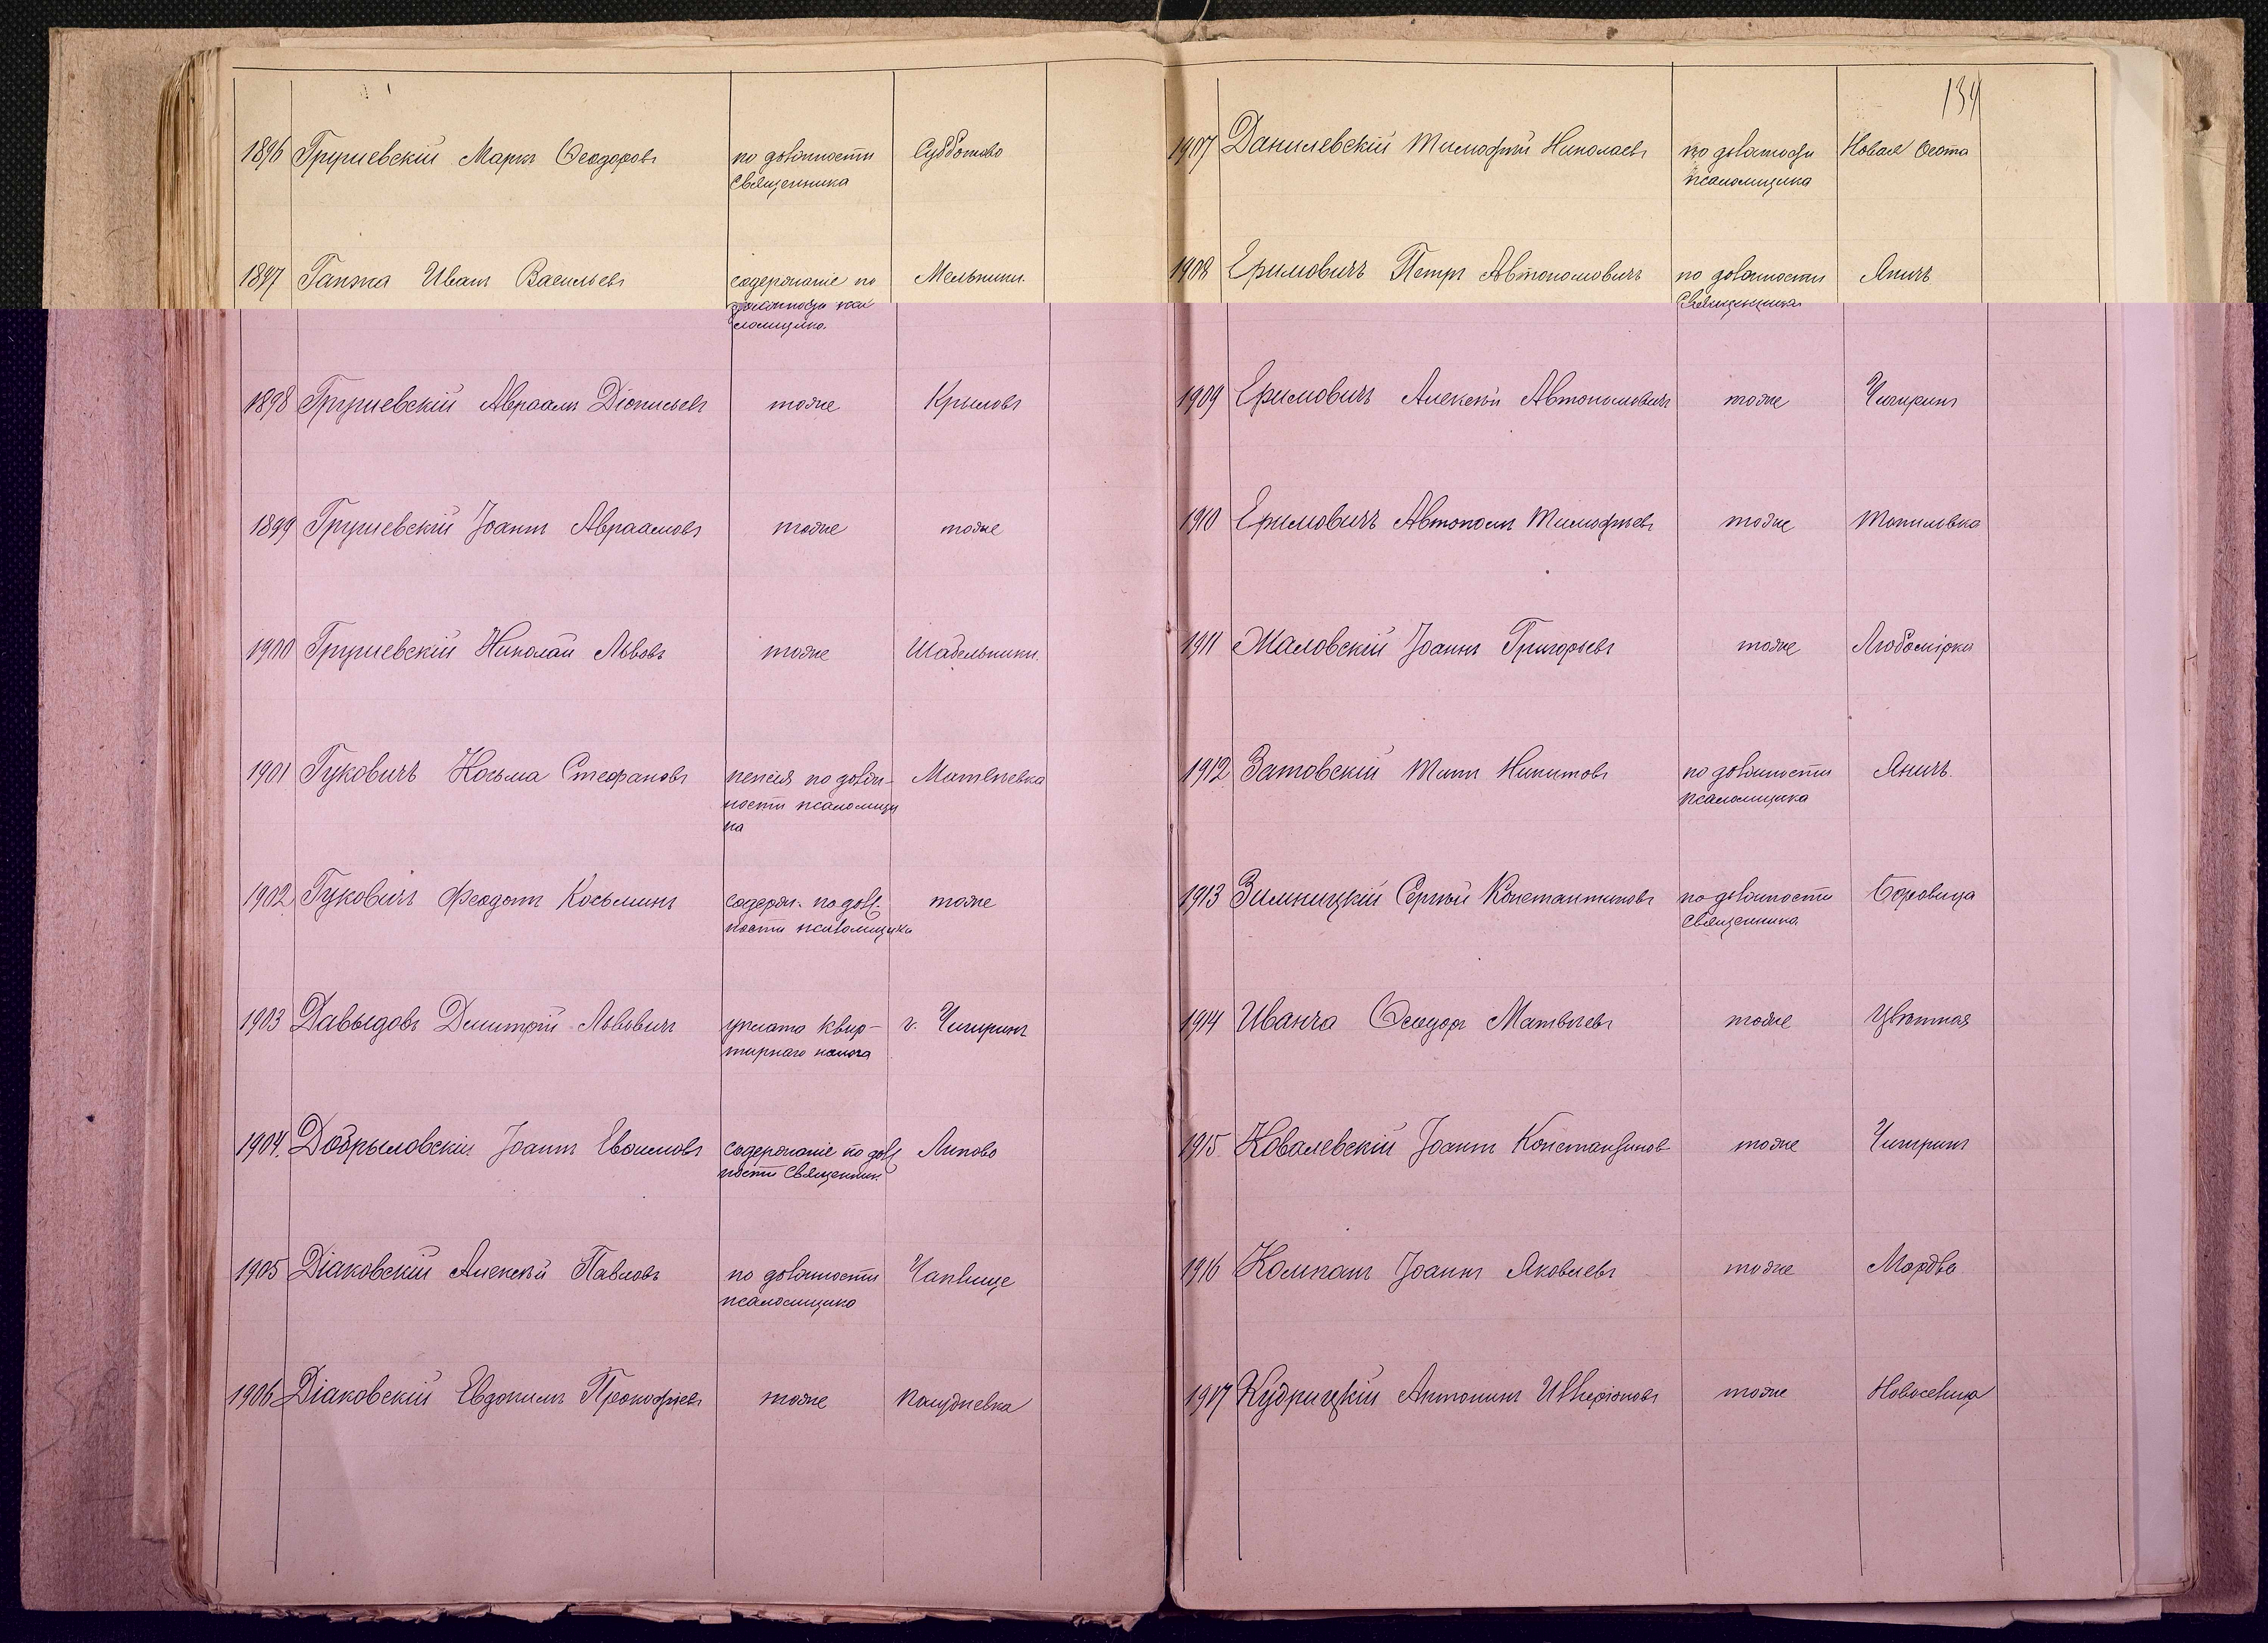 134
1896 Грушевскій Маркъ Ѳеодоровъ по должности Субботово
Священника
1897 Гапжа Иванъ Васильевъ содержаніе по Мельники.
должности пса
ломщика.
1898 Грушевскій Авраамъ Діонисьевъ тоже Крыловъ
1899 Грушевскій Іоаннъ Авраамовъ тоже тоже
1900 Грушевскій Николай Львовъ тоже Шабельники.
1901 Гуковичъ Косьма Стефановъ пенсія по долж- Матвѣевка
ности псаломщи
ка
1902 Гуковичъ Феодотъ Косьминъ содерж. по долж.
тоже
ности псаломщика
1903 Давыдовъ Дмитрій Львовичъ уплата квар- г. Чигиринъ
тирнаго налога
1904. Добрыловскій Іоаннъ Евѳимовъ содержаніе по долж Липово
ности Священник.
1905 Діаковскій Алексѣй Павловъ по должности
псаломщика
1906 Діаковскій Евдокимъ Прокофіевъ тоже Полудневка
1907 Данилевскій Тимофей Николаевъ по должности Новая Осота
псаломщика
1908 Еримовичъ Петръ Автономовичъ по должности Яничъ
Священника
1909 Еримовичъ Алексѣй Автономовичъ тоже Чигиринъ
1910 Еримовичъ Автономъ Тимофѣевъ тоже Топиловка
1911 Жаловскій Іоаннъ Григорьевъ тоже Любомірка
1912 Затовскій Титъ Никитовъ по должности Яничъ.
псаломщика
1913 Зимницкій Сергѣй Константиновъ по должности Боровица
священника
1914 Иванча Ѳеодоръ Матвѣевъ тоже Цвѣтная
1915 Ковалевскій Іоаннъ Константинов тоже Чигиринъ
1916 Компанъ Іоаннъ Яковлевъ тоже Мордва
1917 Кудрицкій Антонинъ тоже Новоселица